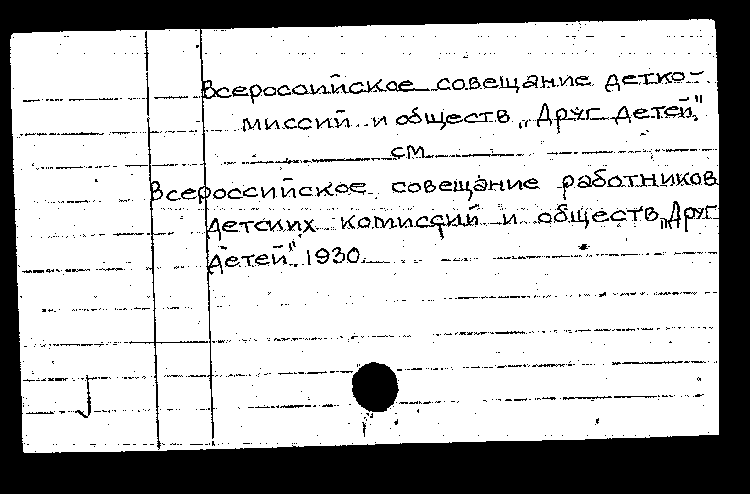 Всероссийское совещание детко-
миссий и обществ „Друг детей"
см
Всероссийское совещание работников
детских комиссий и обществ „Друг
детей". 1930.